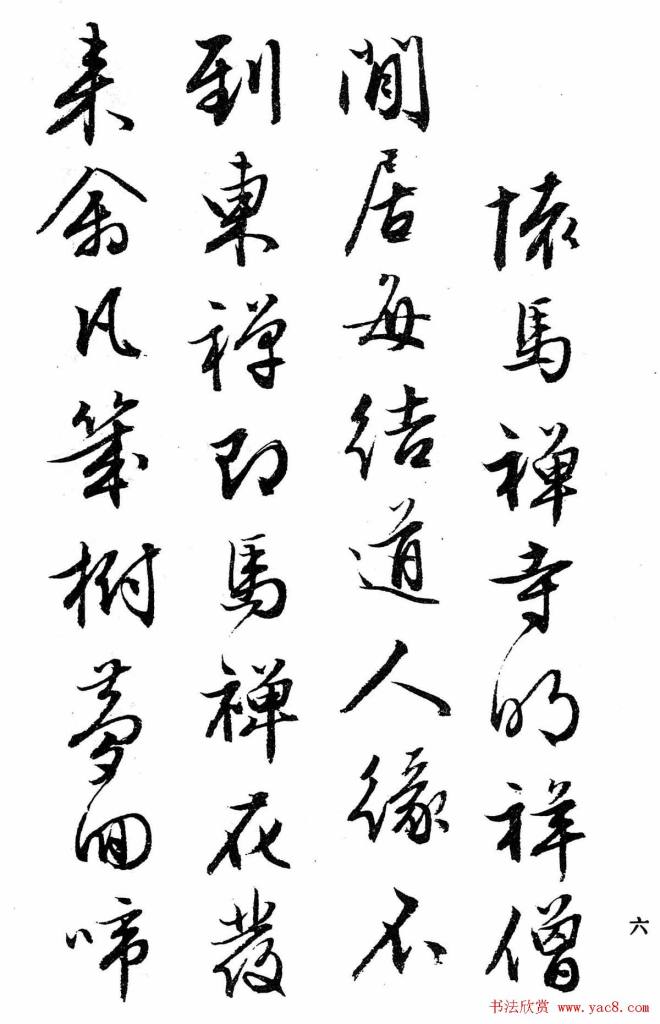 懷馬禪寺明祥僧
閒居每結道人緣不
到東禪即馬禪花發
來禽凡幾樹夢回啼
六
书法欣赏 www.yac8.com